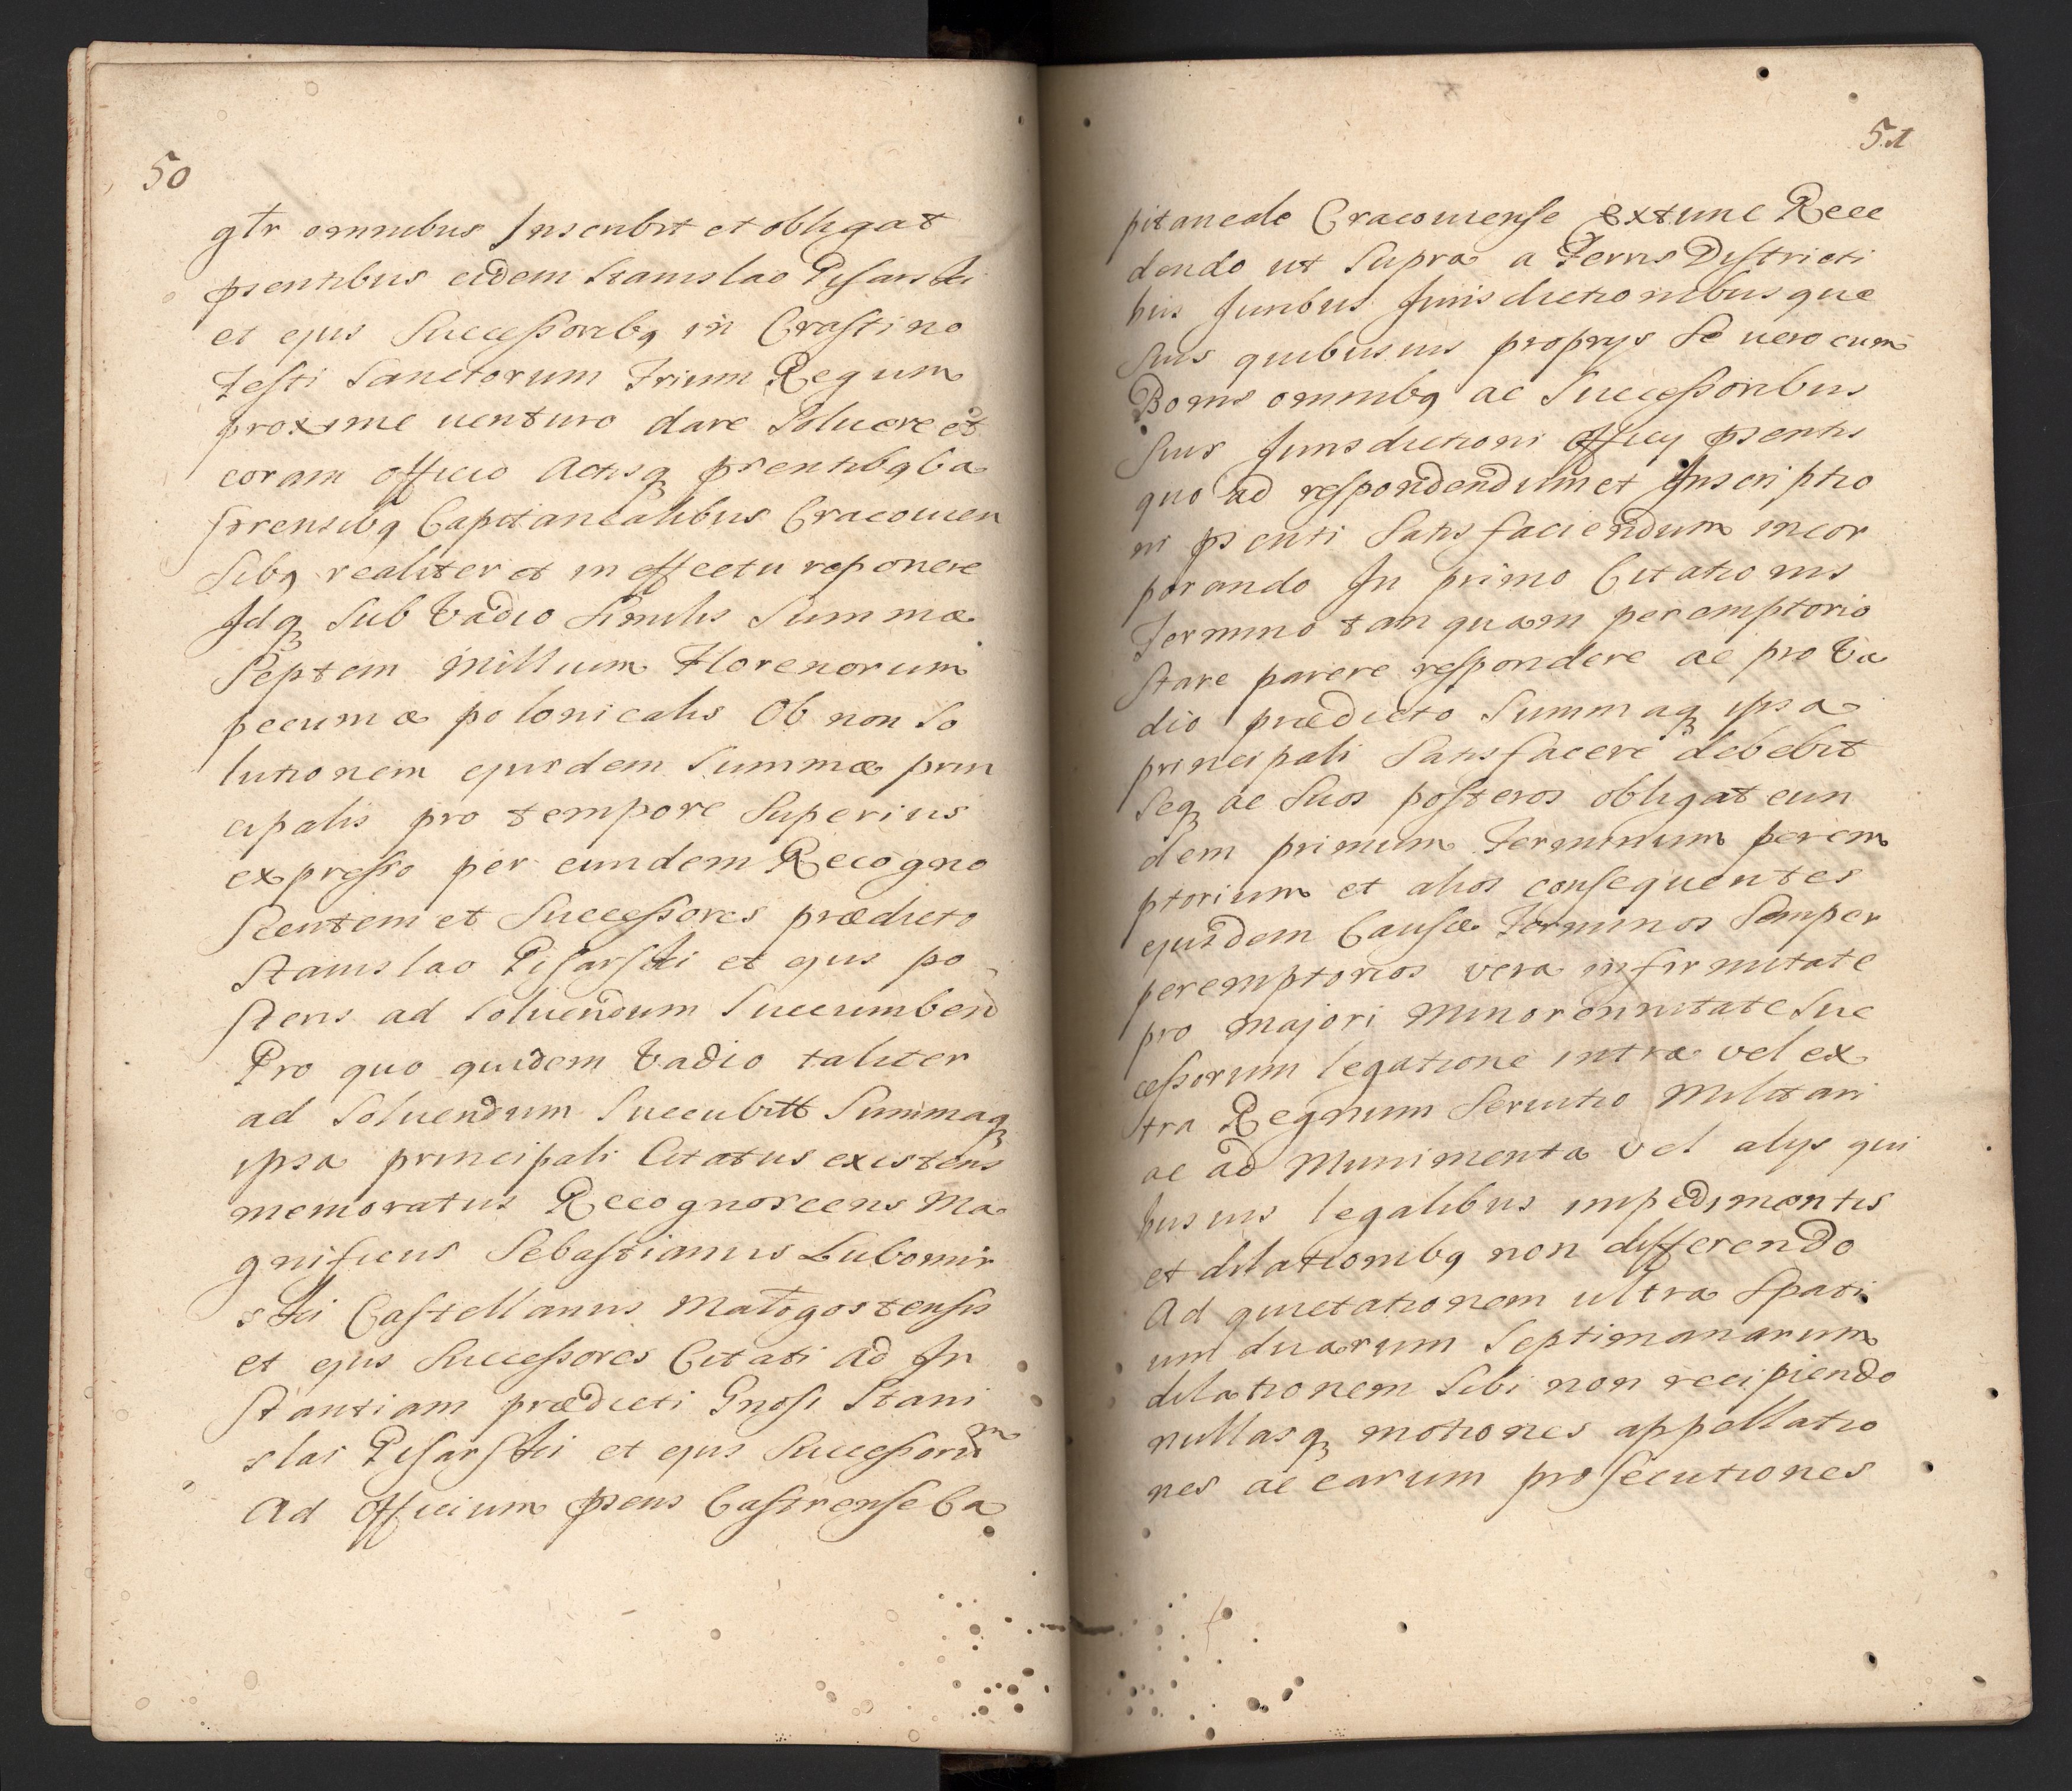 50
gtr omnibus Inscribit et obligat
psentibus eidem Stanislao Pisarski
et ejus Successoribq in Crastino
Festi Sanctorum Trium Regum
proxime venturo dare Soluere et
coram officio Actisq psentibq Ca
strensibq Capitanealibus Cracouien
Sibq realiter et in effectu reponere
Idq Sub Vadio Similis Summæ
Septem Millium Florenorum
pecuniæ polonicalis Ob non So
lutionem ejusdem Summæ prin
cipalis pro tempore Superius
expresso per eundem Recogno
Scentem et Successores prædicto
Stanislao Pisarski et ejus po
steris ad Soluendum Succumbend
Pro quo quidem Vadio taliter
ad Soluendum Succubitt Summaq
ipsa principali Citatus existens
memoratus Recognoscens Ma
gnificus Sebastianus Lubomir
ski Castellanus Małogostensis
et ejus Successores Citati ad In
stantiam prædicti Gnosi Stani
slai Pisarski et ejus Successorum
Ad Officium psens Castrense Ca
51
pitaneale Cracouiense Extunc Rece
dendo ut Supra a Terris Districti
bus Juribus Jurisdictionibusque
Suis quibusuis proprys Se uero cum
Bonis omnibq ac Successoribus
Suis Jurisdictioni Officy psentis
quo ad respondendum et Inscriptio
ni psenti Satisfaciendum incor
porando In primo Citationis
Termino tanquam peremptorio
Stare parere respondere ac pro Va
dio prædicto Summaq ipsa
principali Satisfacere debebit
Seq ac Suos posteros obligat eun
dem primum Terminum perem
ptorium et alios consequentes
ejusdem Causæ Terminos Semper
peremptorios vera infirmitate
pro majori Minorennitate Suc
cessorum legatione intra vel ex
tra Regnum Seruitio Militari
ac ad Munimenta vel alys qui
busuis legalibus impedimentis
et dilationibq non differendo
Ad quietationem ultra Spati
um duarum Septimanarum
dilationem Sibi non recipiendo
nullasq motiones appellatio
nes ac earum prosecutiones